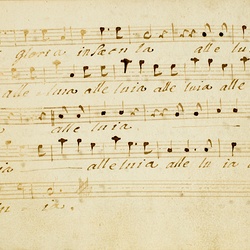 gloria in Seen la alle lu
alle luia alle luia alle luia alle
alle luia
ia alleluia alle lu ia
ia.